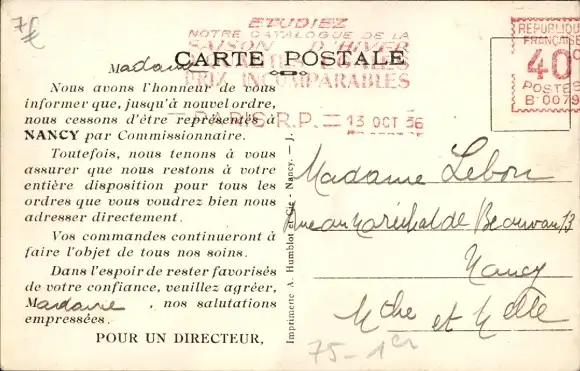 7€
ETUDIEZ
NOTRE CATALOGUE DE LA
SAISON D'HIVER
PRIX INCOMPARABLES
PARIS R.P. 13 OCT 36
REPUBLIQUE
FRANÇAISE
40c
POSTES
B·0079
CARTE POSTALE
Madame
Nous avons l'honneur de vous
informer que, jusqu'à nouvel ordre,
nous cessons d'être représentés à
NANCY par Commissionnaire.
Toutefois, nous tenons à vous
assurer que nous restons à votre
entière disposition pour tous les
ordres que vous voudrez bien nous
adresser directement.
Vos commandes continueront à
faire l'objet de tous nos soins.
Dans l'espoir de rester favorisés
de votre confiance, veuillez agréer,
Madame, nos salutations
empressées.
POUR UN DIRECTEUR,
Imprimerie A. Humblot et Cie - Nancy. - J.
Madame Lebon
Rue au Maréchal de 13
Nancy
Mthe et Mlle
75-1er